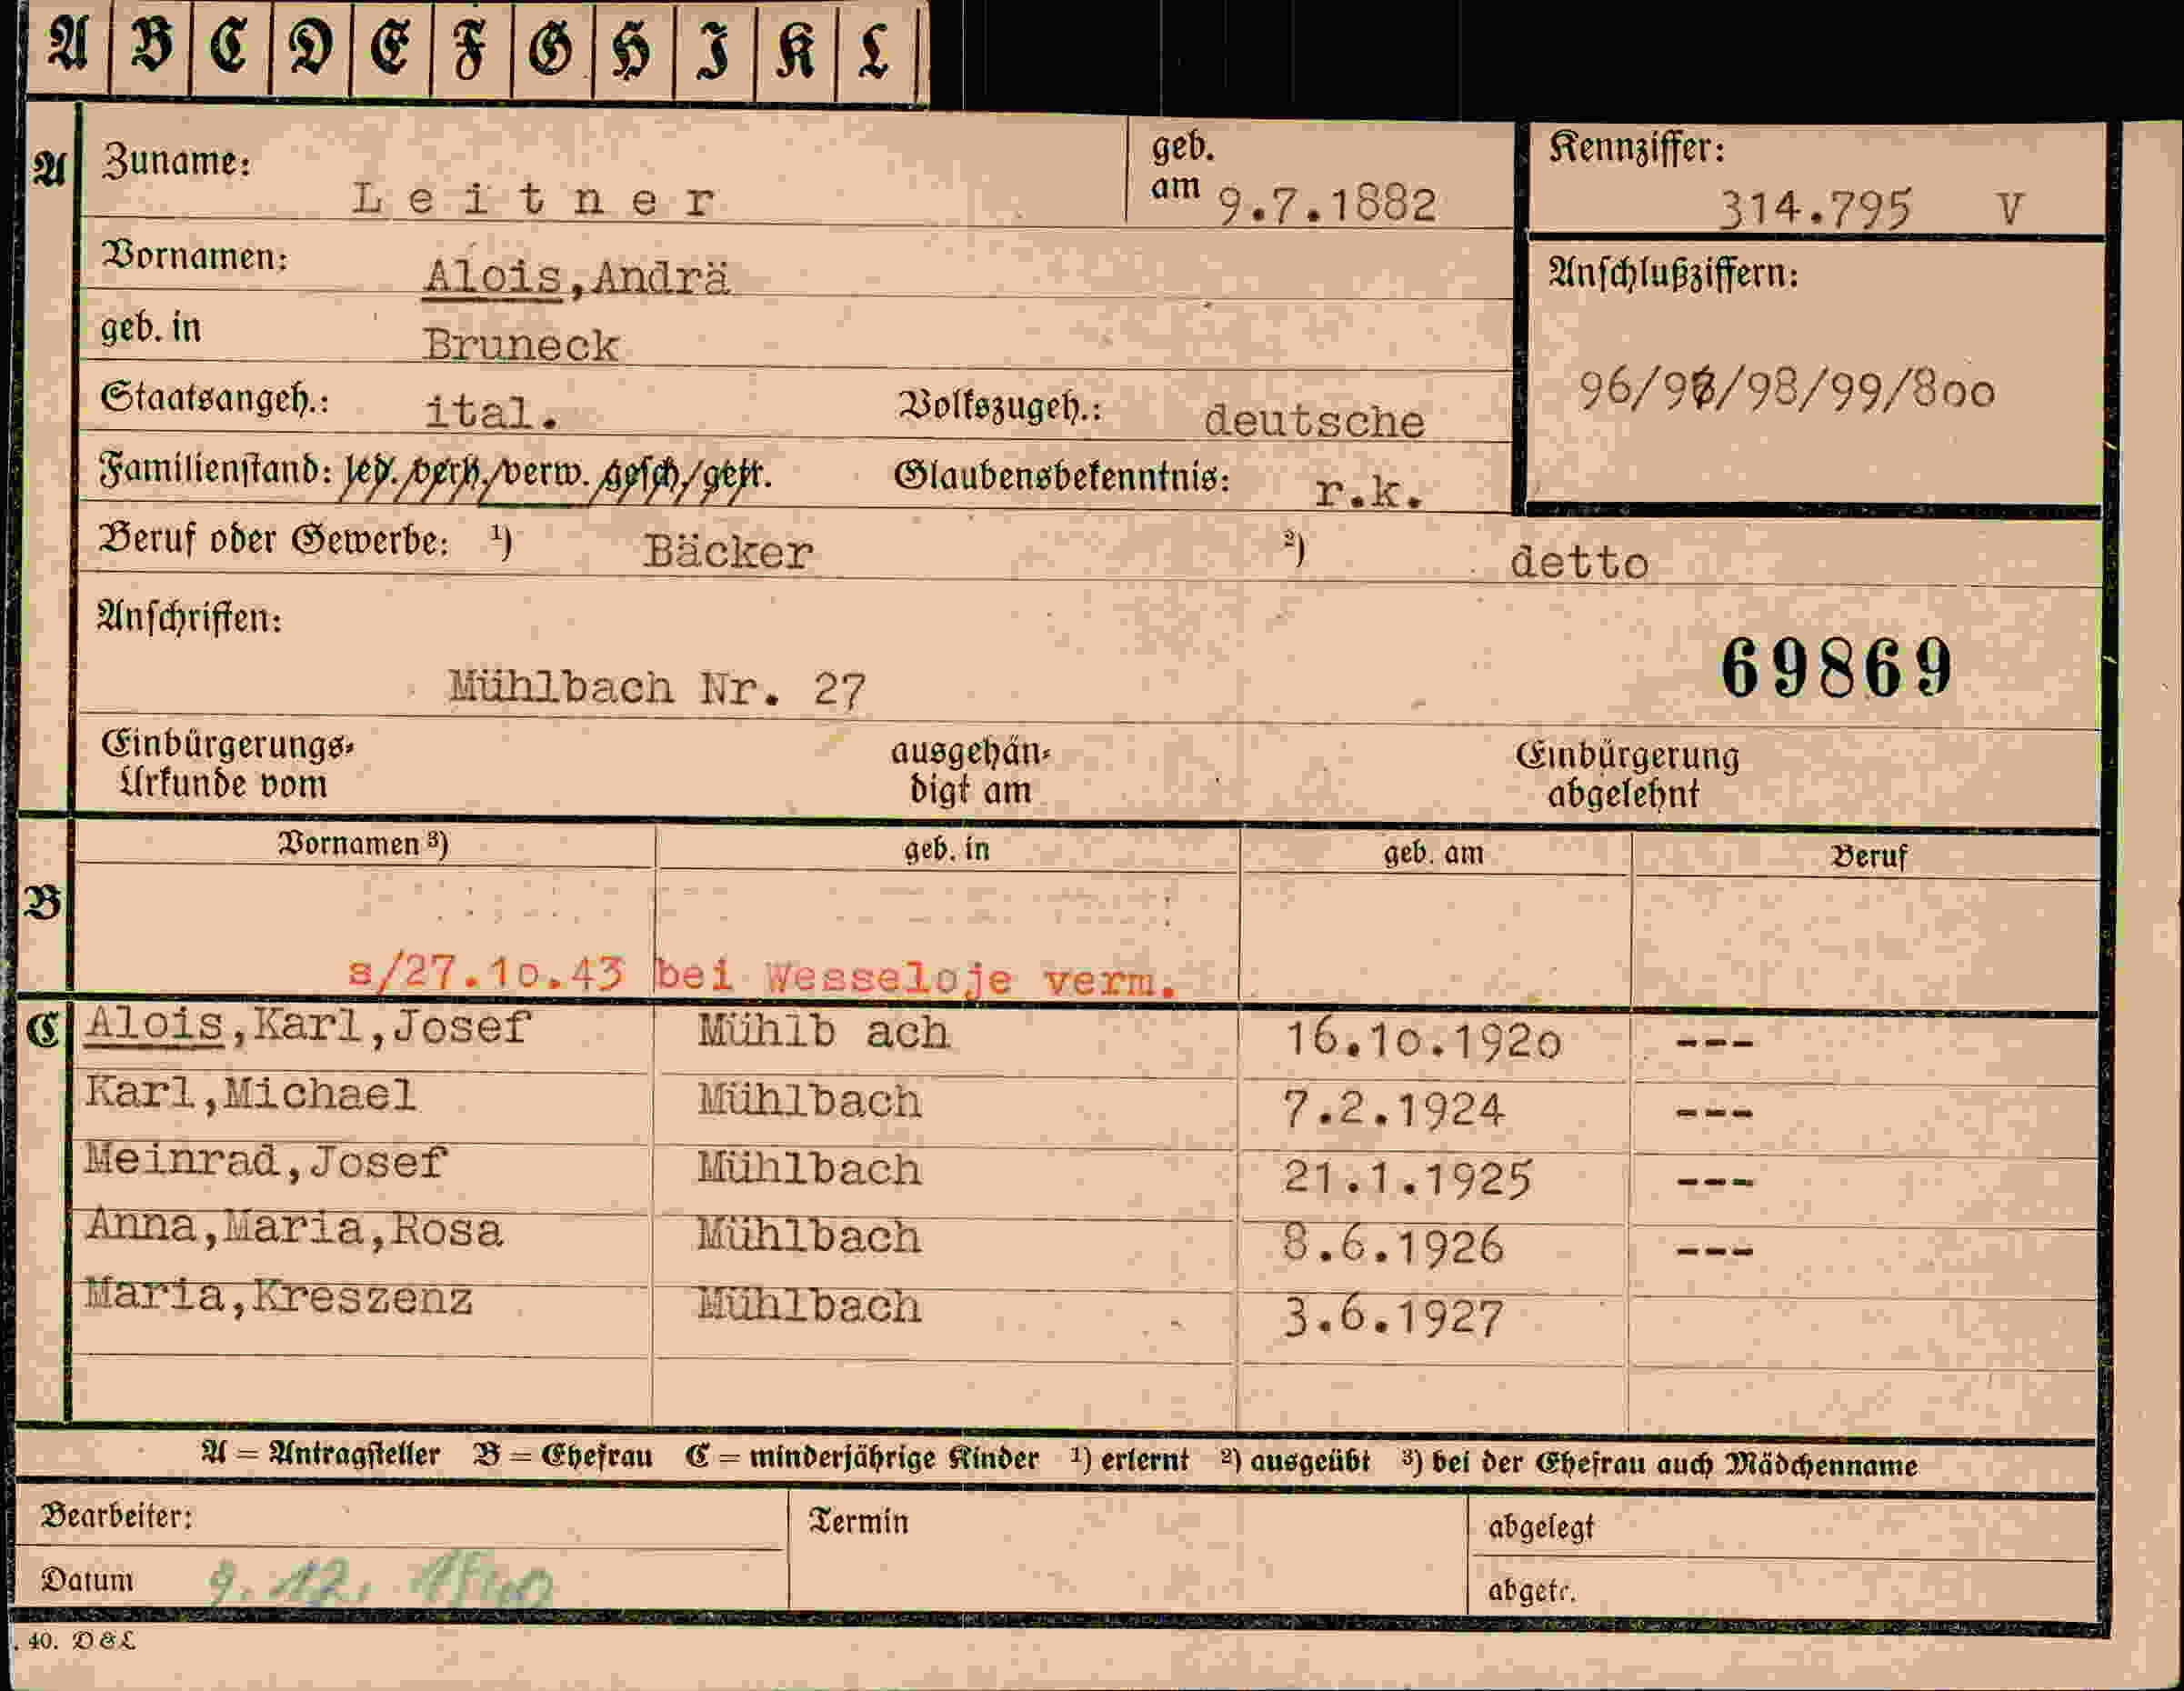 A B C D E F G H I K L
A Zuname: Leitner geb. am 9.7.1882 Kennziffer: 314.795 V
Vornamen: Alois,Andrä Anschlußziffern:
geb. in Bruneck
96/97/98/99/800
Staatsangeh.: ital. Volkszugeh.: deutsche
Familienstand: led./verh./verw./gesch/getr. Glaubensbekenntnis: r.k.
Beruf oder Gewerbe: ¹) Bäcker ²) detto
Anschriften:
Mühlbach Nr. 27 69869
Einbürgerungs- ausgehän- Einbürgerung
Urkunde vom digt am abgelehnt
Vornamen ³) geb. in geb. am Beruf
B
s/27.10.43 bei Wesseloje verm.
C Alois,Karl,Josef Mühlb ach 16.10.1920 ---
Karl,Michael Mühlbach 7.2.1924 ---
Meinrad,Josef Mühlbach 21.1.1925 ---
Anna,Maria,Rosa Mühlbach 8.6.1926 ---
Maria,Kreszenz Mühlbach 3.6.1927
A = Antragsteller B = Ehefrau C = minderjährige Kinder ¹) erlernt ²) ausgeübt ³) bei der Ehefrau auch Mädchenname
Bearbeiter: Termin abgelegt
Datum 9. 12. 1940 abgetr.
. 40. D & L